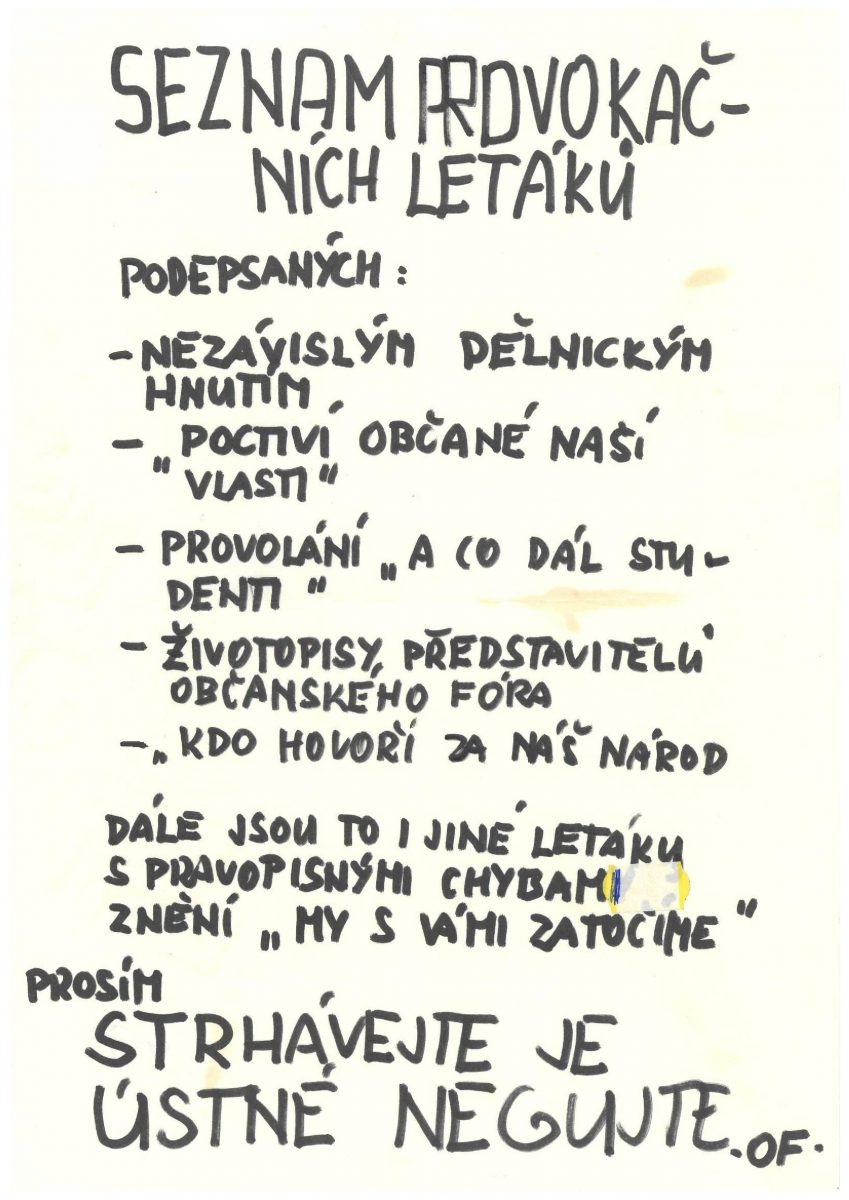 SEZNAM PROVOKAČ-
NÍCH LETÁKŮ
PODEPSANÝCH:
- NEZÁVISLÝM DĚLNICKÝM
HNUTÍM
- „POCTIVÍ OBČANÉ NAŠÍ
VLASTI"
- PROVOLÁNÍ „A CO DÁL STU-
DENTI"
- ŽIVOTOPISY PŘEDSTAVITELŮ
OBČANSKÉHO FÓRA
- „KDO HOVOŘÍ ZA NÁŠ NÁROD
DÁLE JSOU TO I JINÉ LETÁKU
S PRAVOPISNÝMI CHYBAMI
ZNĚNÍ „MY S VÁMI ZATOČÍME"
PROSÍM
STRHÁVEJTE JE
ÚSTNĚ NEGUJTE.
.OF.